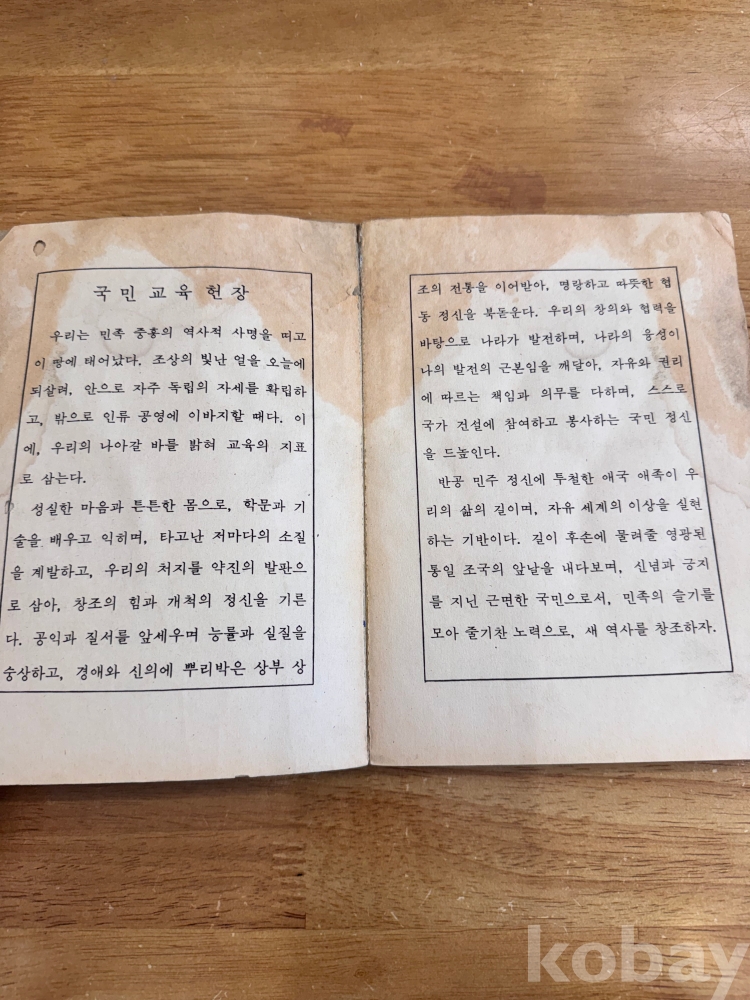 국민교육헌장
우리는 민족 중흥의 역사적 사명을 띠고
이 땅에 태어났다. 조상의 빛난 얼을 오늘에
되살려, 안으로 자주 독립의 자세를 확립하
고, 밖으로 인류 공영에 이바지할 때다. 이
에, 우리의 나아갈 바를 밝혀 교육의 지표
로 삼는다.
성실한 마음과 튼튼한 몸으로, 학문과 기
술을 배우고 익히며, 타고난 저마다의 소질
을 계발하고, 우리의 처지를 약진의 발판으
로 삼아, 창조의 힘과 개척의 정신을 기른
다. 공익과 질서를 앞세우며 능률과 실질을
숭상하고, 경애와 신의에 뿌리박은 상부 상
조의 전통을 이어받아, 명랑하고 따뜻한 협
동 정신을 북돋운다. 우리의 창의와 협력을
바탕으로 나라가 발전하며, 나라의 융성이
나의 발전의 근본임을 깨달아, 자유와 권리
에 따르는 책임과 의무를 다하며, 스스로
국가 건설에 참여하고 봉사하는 국민 정신
을 드높인다.
반공 민주 정신에 투철한 애국 애족이 우
리의 삶의 길이며, 자유 세계의 이상을 실현
하는 기반이다. 길이 후손에 물려줄 영광된
통일 조국의 앞날을 내다보며, 신념과 긍지
를 지닌 근면한 국민으로서, 민족의 슬기를
모아 줄기찬 노력으로, 새 역사를 창조하자.
kobay